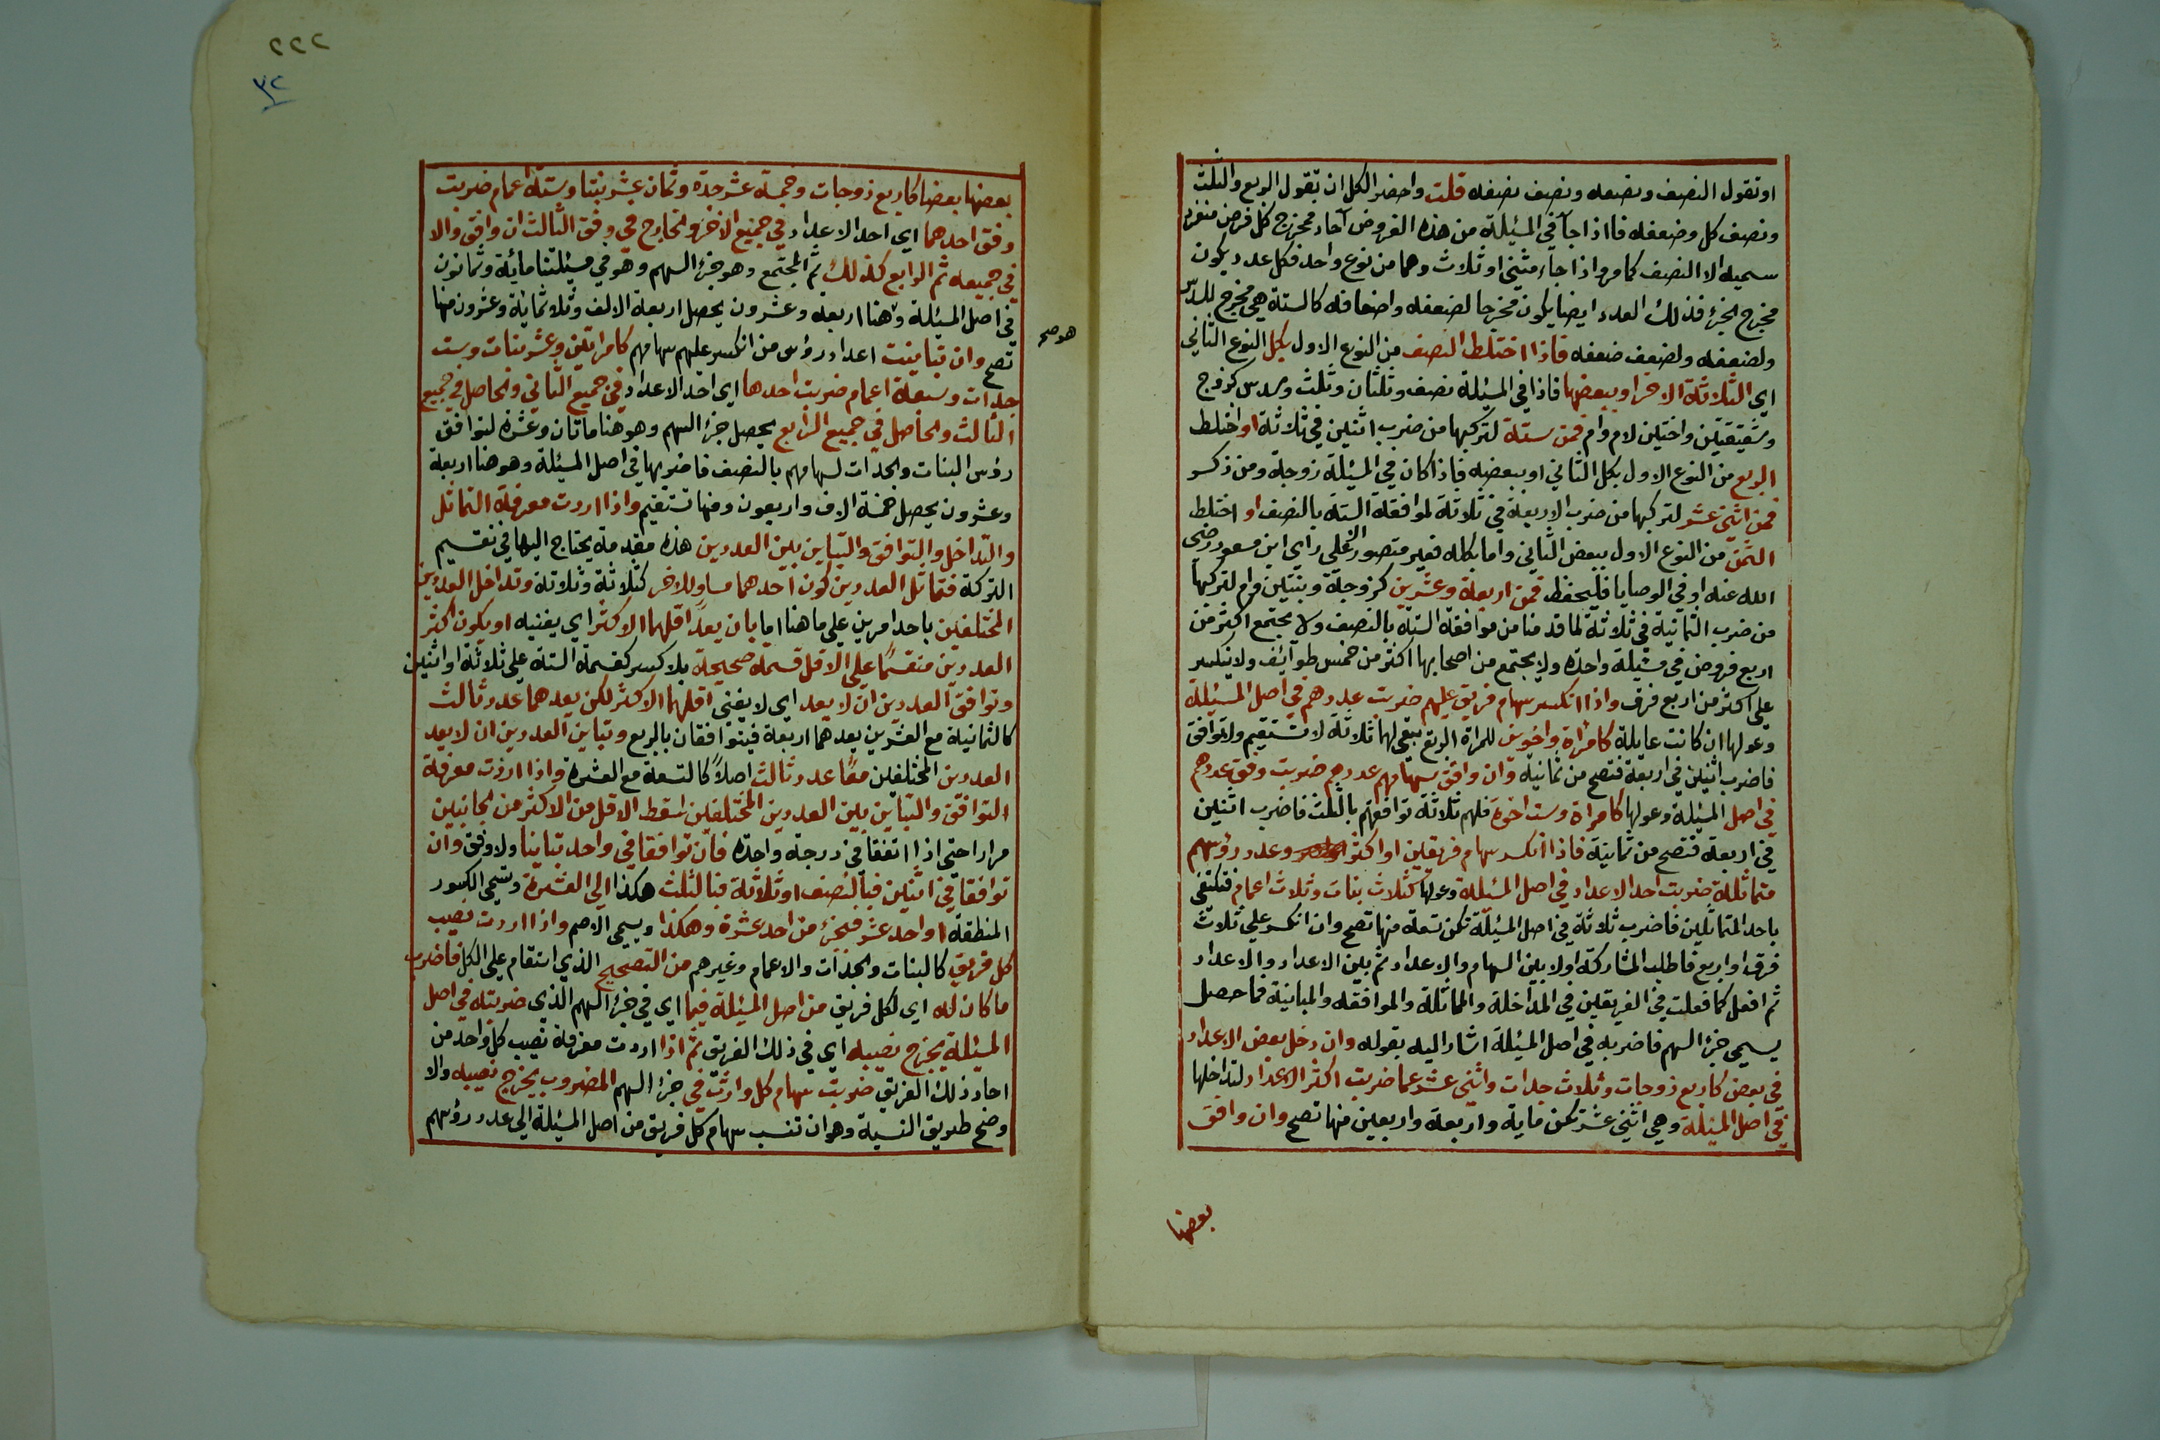 او تقول النصف ونصفه ونصف نصفه قلت واخصر الكل ان تقول الربع والثلث
ونصف كل وضعفه فاذا جآ في المسئلة من هذه الفروض آحاد فمخرج كل فرض منفرد
سميه الا النصف كما مر واذا جاء مثنى او ثلاث وهما من نوع واحد فكل عدد يكون
مخرج الجزء فذلك العدد ايضا يكون مخرجا لضعفه واضعافه كالستة هي مخرج للسدس
ولضعفه ولضعف ضعفه فاذا اختلط النصف من النوع الاول بكل النوع الثاني
اي الثلاثة الاخر او ببعضها فاذا في المسئلة نصف وثلثان وثلث وسدس كزوج
وشقيقتين واختين لام وام فمن ستة لتركبها من ضرب اثنين في ثلاثة او اختلط
الربع من النوع الاول بكل الثاني او ببعضه فاذا كان في المسئلة زوجة ومن ذكر
فمن اثنى عشر لتركبها من ضرب الاربعة في ثلاثة لموافقة الستة بالنصف او اختلط
الثمن من النوع الاول ببعض الثاني واما بكله فغير متصور الا على راي ابن مسعود رضى
الله عنه او في الوصايا فليحفظ فمن اربعة وعشرين كزوجة وبنتين وام لتركبها
من ضرب الثمانية في ثلاثة لما قدمنا من موافقة الستة بالنصف ولا يجتمع اكثر من
اربع فروض في مسئلة واحدة ولا يجتمع من اصحابها اكثر من خمس طوآئف ولا ينكسر
على اكثر من اربع فرق واذا انكسر سهام فريق عليهم ضربت عددهم في اصل المسئلة
وعولها ان كانت عايلة كامراة واخوين للمراة الربع يبقى لهما ثلاثة لا تستقيم ولا توافق
فاضرب اثنين في اربعة فتصح من ثمانية وان وافق سهامهم عددهم ضربت وفق عددهم
في اصل المسئلة وعولها كامراة وست اخوة فلهم ثلاثة توافقهم بالثلث فاضرب اثنين
في اربعة فتصح من ثمانية فاذا انكسر سهام فريقين او اكثر وعدد رؤسهم
متماثلة ضربت احد الاعداد في اصل المسئلة وعولها كثلاث بنات وثلاث اعمام فتكتفى
باحد المتماثلين فاضرب ثلاثة في اصل المسئلة تكن تسعة منها تصح وان انكسر على ثلاث
فرق او اربع فاطلب المشاركة اولا بين السهام والاعداد ثم بين الاعداد والاعداد
ثم افعل كما فعلت في الفريقين في المداخلة والمماثلة والموافقه والمباينة فما حصل
يسمى جزء السهم فاضربه في اصل المسئلة اشار اليه بقوله وان دخل بعض الاعداد
في بعض كاربع زوجات وثلاث جدات واثنى عشر عما ضربت اكثر الاعداد لتداخلها
في اصل المسئلة وهي اثنى عشر تكن ماية واربعة واربعين منها تصح وان وافق
بعضها
٢٢٢
٣٢
بعضها بعضا كاربع زوجات وخمسة عشر جدة وثمان عشر بنتا وستة اعمام ضربت
وفق احدهما اي احد الاعداد في جميع الاخر والخارج في وفق الثالث ان وافق والا
في جميعه ثم الرابع كذلك ثم المجتمع وهو جزء السهم وهو في مسئلتنا مائة وثمانون
في اصل المسئلة وهنا اربعة وعشرون يحصل اربعة الالف وثلاثمائة وعشرون منها
هو صح
تصح وان تباينت اعداد رؤس من انكسر عليهم سهامهم كامراتين وعشر بنات وست
جدات وسبعة اعمام ضربت احدها اي احد الاعداد في جميع الثاني والحاصل في جميع
الثالث والحاصل في جميع الرابع يحصل جزء السهم وهو هنا ماتان وعشرة لتوافق
رؤس البنات والجدات لسهامهم بالنصف فاضربها في اصل المسئلة وهو هنا اربعة
وعشرون يحصل خمسة الاف واربعون ومنها تستقيم واذا اردت معرفة التماثل
والتداخل والتوافق والتباين بين العددين هذه مقدمة يحتاج اليها في تقسيم
التركة فتماثل العددين كون احدهما مساو للاخر كثلاثة وثلاثة وتداخل العددين
المختلفين باحد امرين على ما هنا اما بان يعد اقلهما الاكثر اي يفنيه او يكون اكثر
العددين منقسما على الاقل قسمة صحيحة بلا كسر كقسمة الستة على ثلاثة او اثنين
وتوافق العددين ان لا يعد اي لا يفنى اقلهما الاكثر لكن يعدهما عدد ثالث
كالثمانية مع العشرين يعدهما اربعة فيتوافقان بالربع وتباين العددين ان لا يعد
العددين المختلفين معًا عدد ثالث اصلاً كالتسعة مع العشرة واذا اردت معرفة
التوافق والتباين بين العددين المختلفين اسقط الاقل من الاكثر من الجانبين
مرارا حتى اذا اتفقا في درجة واحدة فان توافقا في واحد تباينا ولا وفق وان
توافقا في اثنين فبالنصف او ثلاثة فبالثلث هكذا الى العشرة وتسمى الكسور
المنطقة او احد عشر فبجزء من احد عشرة وهكذا ويسمى الاصم واذا اردت نصيب
كل فريق كالبنات والجدات والاعمام وغيرهم من التصحيح الذي استقام على الكل فاضرب
ما كان له اي لكل فريق من اصل المسئلة فيما اي في جزء السهم الذي ضربته في اصل
المسئلة يخرج نصيبه اي في ذلك الفريق ثم اذا اردت معرفة نصيب كل واحد من
احاد ذلك الفريق ضربت سهام كل وارث في جزء السهم المضروب يخرج نصيبه والا
وضح طريق النسبة وهو ان تنسب سهام كل فريق من اصل المسئلة الى عدد رؤسهم